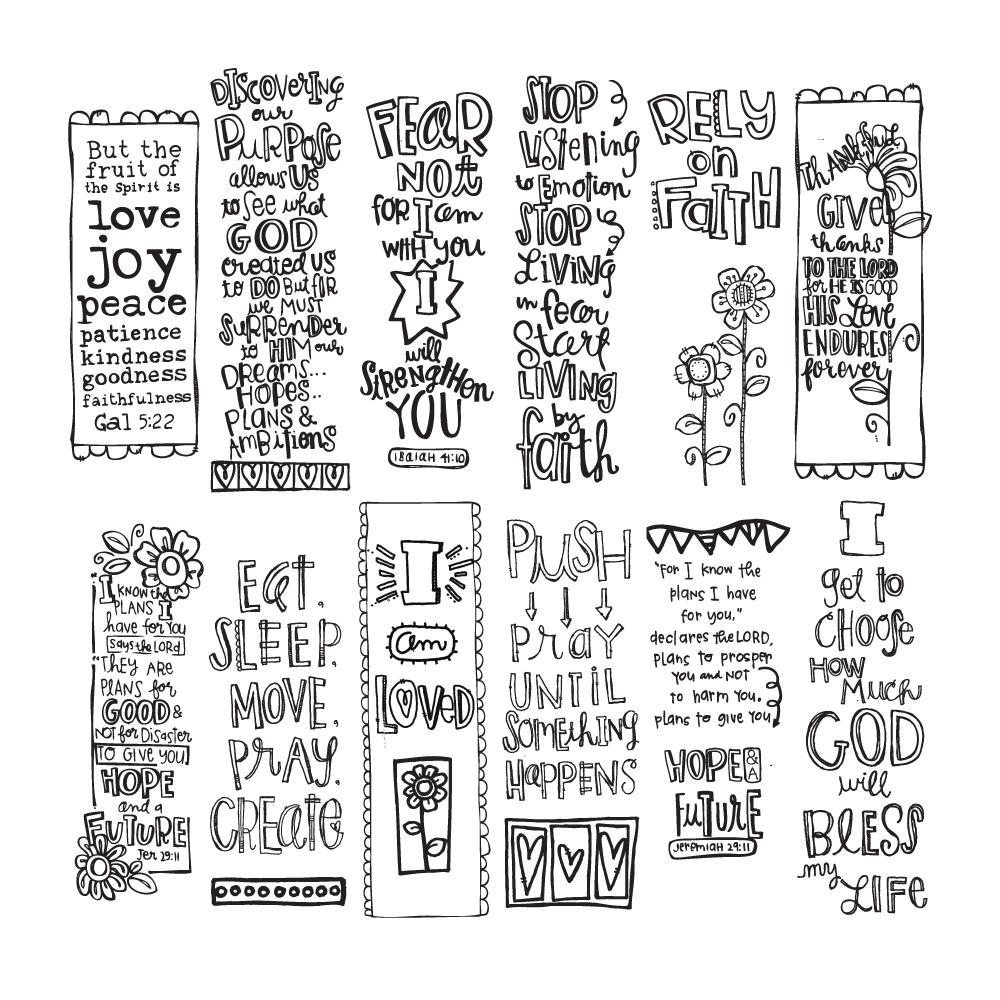 But the
fruit of
the Spirit is
love
joy
peace
patience
kindness
goodness
faithfulness
Gal 5:22
DISCOVERING
our
PURPOSE
allows US
to see what
GOD
created US
to DO But first
we MUST
SURRENDER
to HIM our
DREAMS...
HOPES..
PLANS &
AMBITIONS
FEAR
NOT
for I am
with you
I
will
Strengthen
YOU
ISAIAH 41:10
STOP
Listening
to Emotion
STOP
LIVING
in fear
Start
LIVING
by
faith
RELY
on
FAITH
THANKFUL
GIVE
thanks
TO THE LORD
for HE IS GOOD
HIS Love
ENDURES
forever
"I KNOW the
PLANS I
have for you
says the LORD
"They ARE
PLANS for
GOOD &
NOT for Disaster
TO GIVE you
HOPE
and a
FUTURE
Jer 29:11
EAT.
SLEEP.
MOVE.
PRAY.
CREATE
I
am
LOVED
PUSH
PRAY
UNTIL
SOMEthING
HAPPENS
"For I know the
plans I have
for you,"
declares the LORD,
plans to prosper
you and NOT
to harm you.
plans to give you
HOPE & A
FUTURE
Jeremiah 29:11
I
get to
CHOOSE
HOW
Much
GOD
will
BLESS
my
LIFE